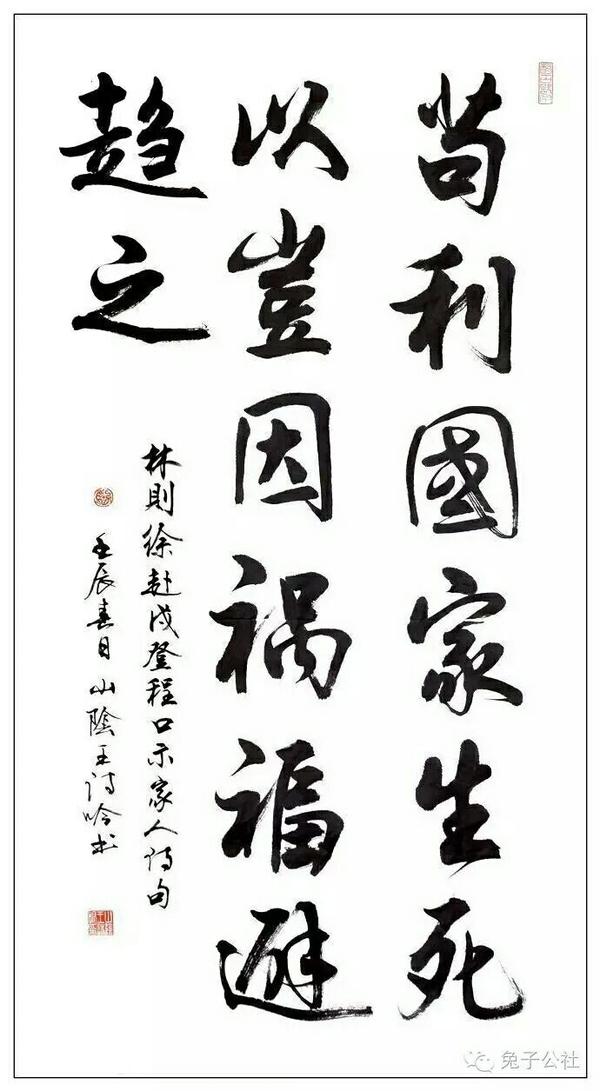 苟利國家生死
以豈因祸福避
趋之
林則徐赴戍登程口示家人诗句
壬辰春日山陰王诗吟
兔子公社